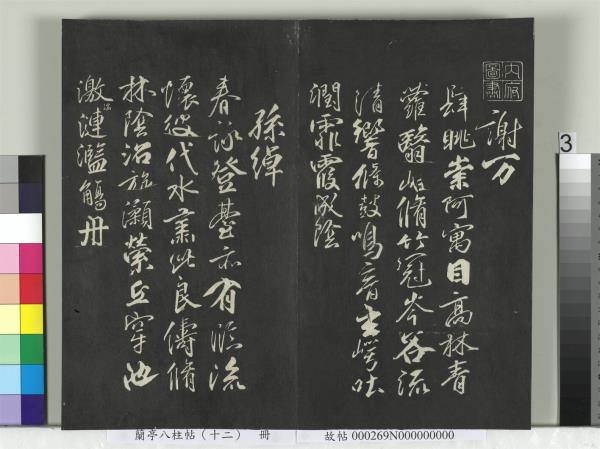 內府圖書
謝万
肆眺崇阿寓目高林青
蘿翳岫脩竹冠岑谷流
清響條鼓鳴音玄崿吐
潤霏霞成陰
孫綽
春詠登臺亦有臨流
懷彼伐木肅此良儔脩
林陰沼旋瀨縈丘穿池
激湍漣濫觴舟
3
蘭亭八柱帖（十二） 冊
故帖 000269N000000000